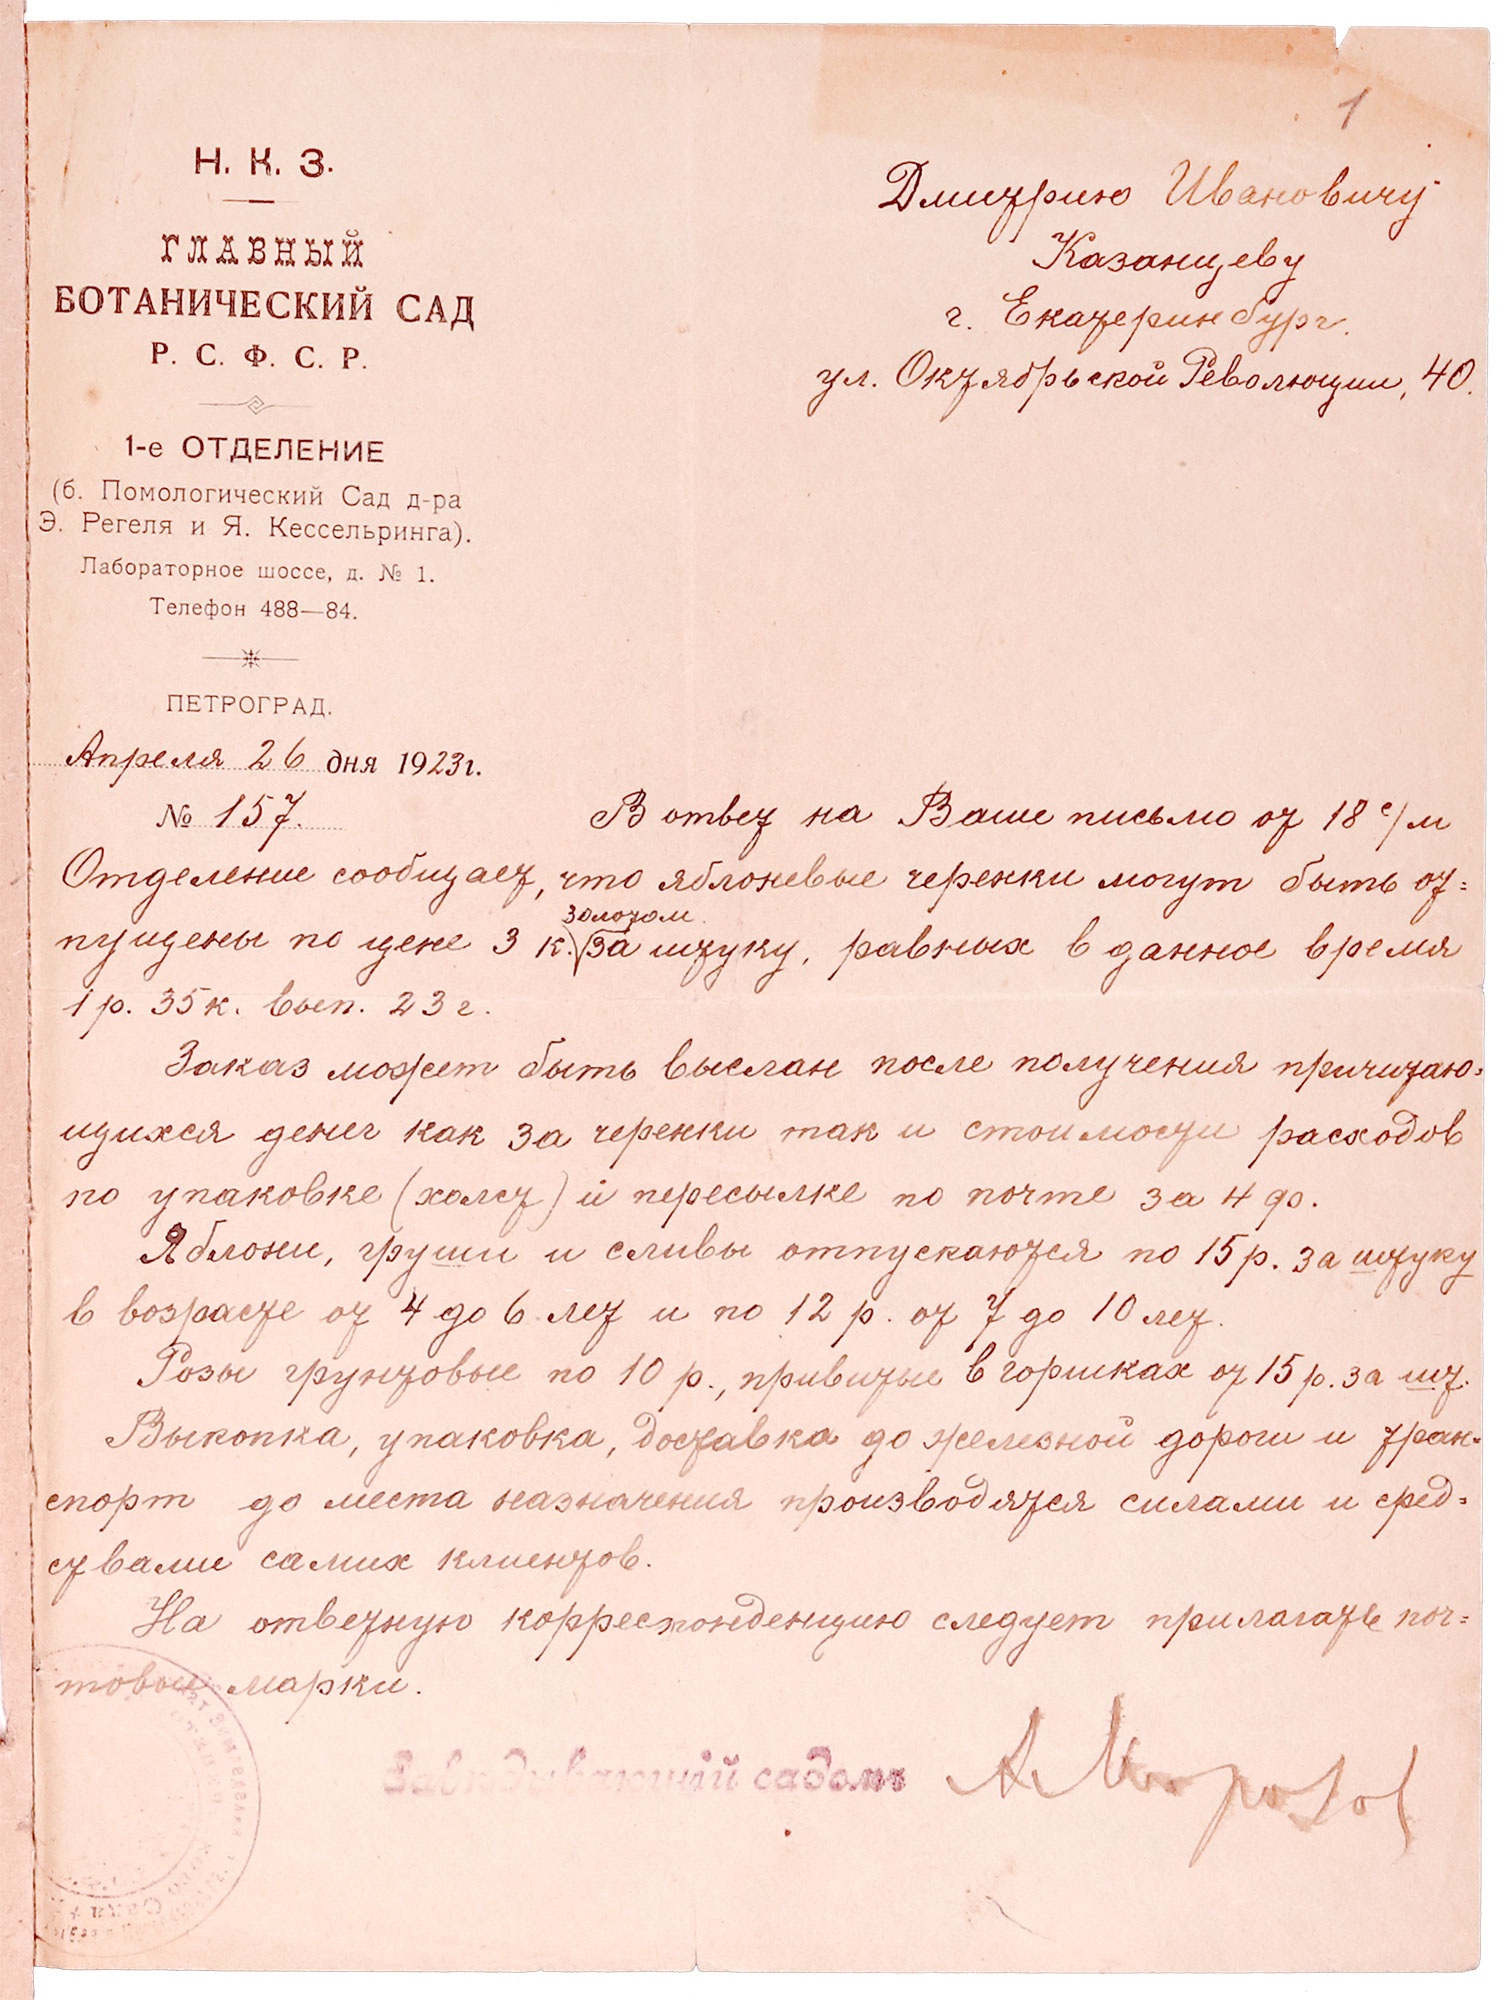 1
Н. К. З.
ГЛАВНЫЙ
БОТАНИЧЕСКИЙ САД
Р. С. Ф. С. Р.
1-е ОТДЕЛЕНИЕ
(б. Помологический Сад д-ра
Э. Регеля и Я. Кессельринга).
Лабораторное шоссе, д. № 1.
Телефон 488—84.
ПЕТРОГРАД.
Апреля 26 дня 1923г.
№ 157.
Дмитрию Ивановичу
Казанцеву
г. Екатеринбург.
ул. Октябрьской Революции, 40.
В ответ на Ваше письмо от 18 с/м
Отделение сообщает, что яблоневые черенки могут быть от=
золотом
пущены по цене 3 к. за штуку, равных в данное время
1 р. 35 к. вып. 23 г.
Заказ может быть выслан после получения причитаю=
щихся денег как за черенки так и стоимости расходов
по упаковке (холст) и пересылке по почте за 4 ф.
Яблони, груши и сливы отпускаются по 15 р. за штуку
в возрасте от 4 до 6 лет и по 12 р. от 7 до 10 лет.
Розы грунтовые по 10 р., привитые в горшках от 15 р. за шт.
Выкопка, упаковка, доставка до железной дороги и тран=
спорт до места назначения производятся силами и сред=
ствами самих клиентов.
На ответную корреспонденцию следует прилагать поч=
товые марки.
Заведывающій садомъ
А Морозов